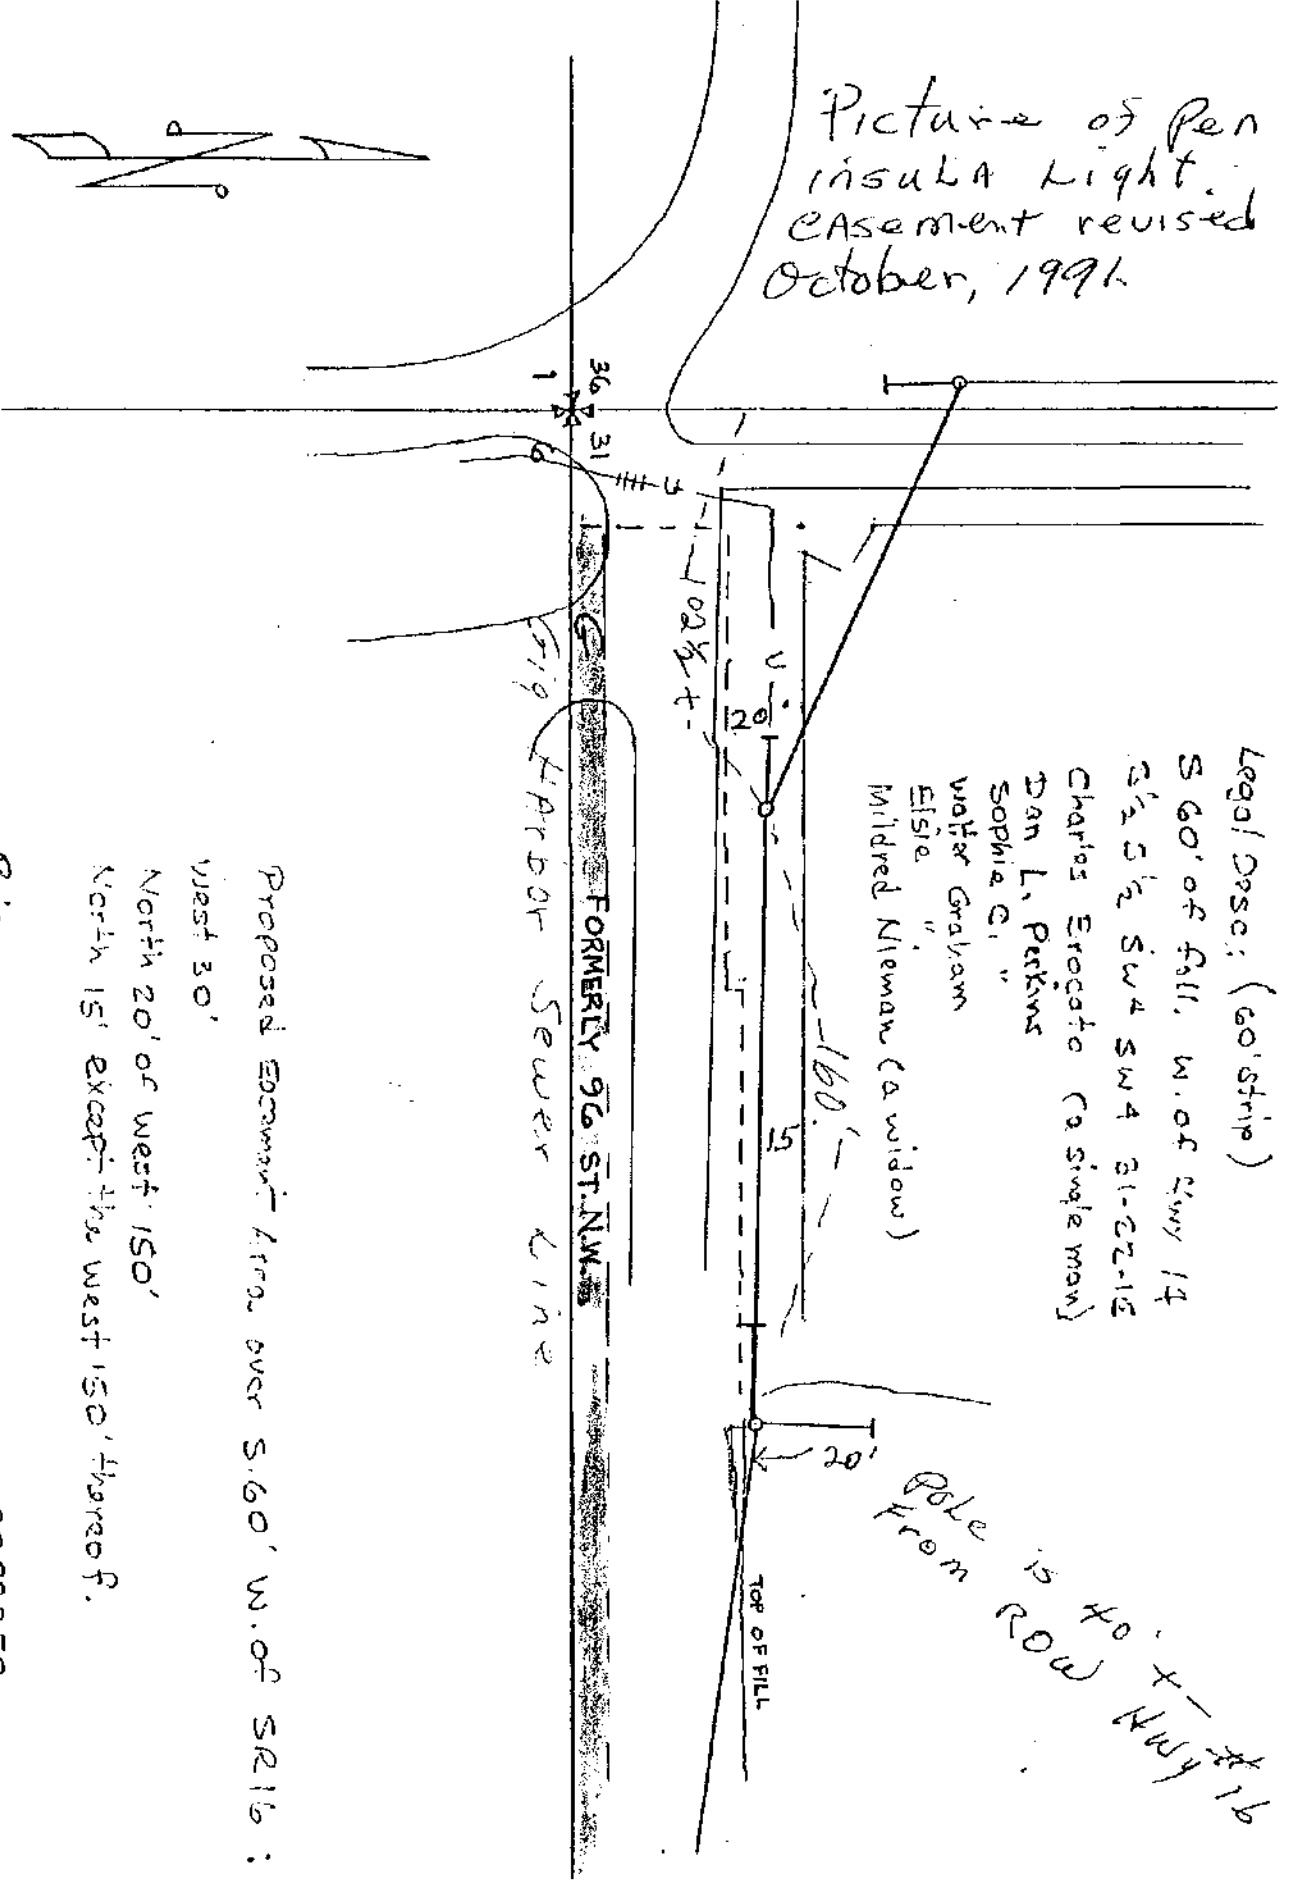 Picture of Pen
insula Light.
Easement revised
October, 1991.
Legal Desc: (60' strip)
S 60' of foll. W. of Hwy 14
S½ S½ SW4 SW4 31-22-1E
Charles Erocato (a single man)
Dan L. Perkins
Sophia C. "
Walter Graham
Elsie "
Mildred Nieman (a widow)
36
1
31
G
U
102½ ±
U
20'
160'
15
20'
Pole is 40' ±
From ROW Hwy #16
TOP OF FILL
G
FORMERLY 96 ST. N.W.
Gig Harbor Sewer Line
Proposed Easement Area over S. 60' W. of SR16:
West 30'
North 20' of west 150'
North 15' except the west 150' thereof.